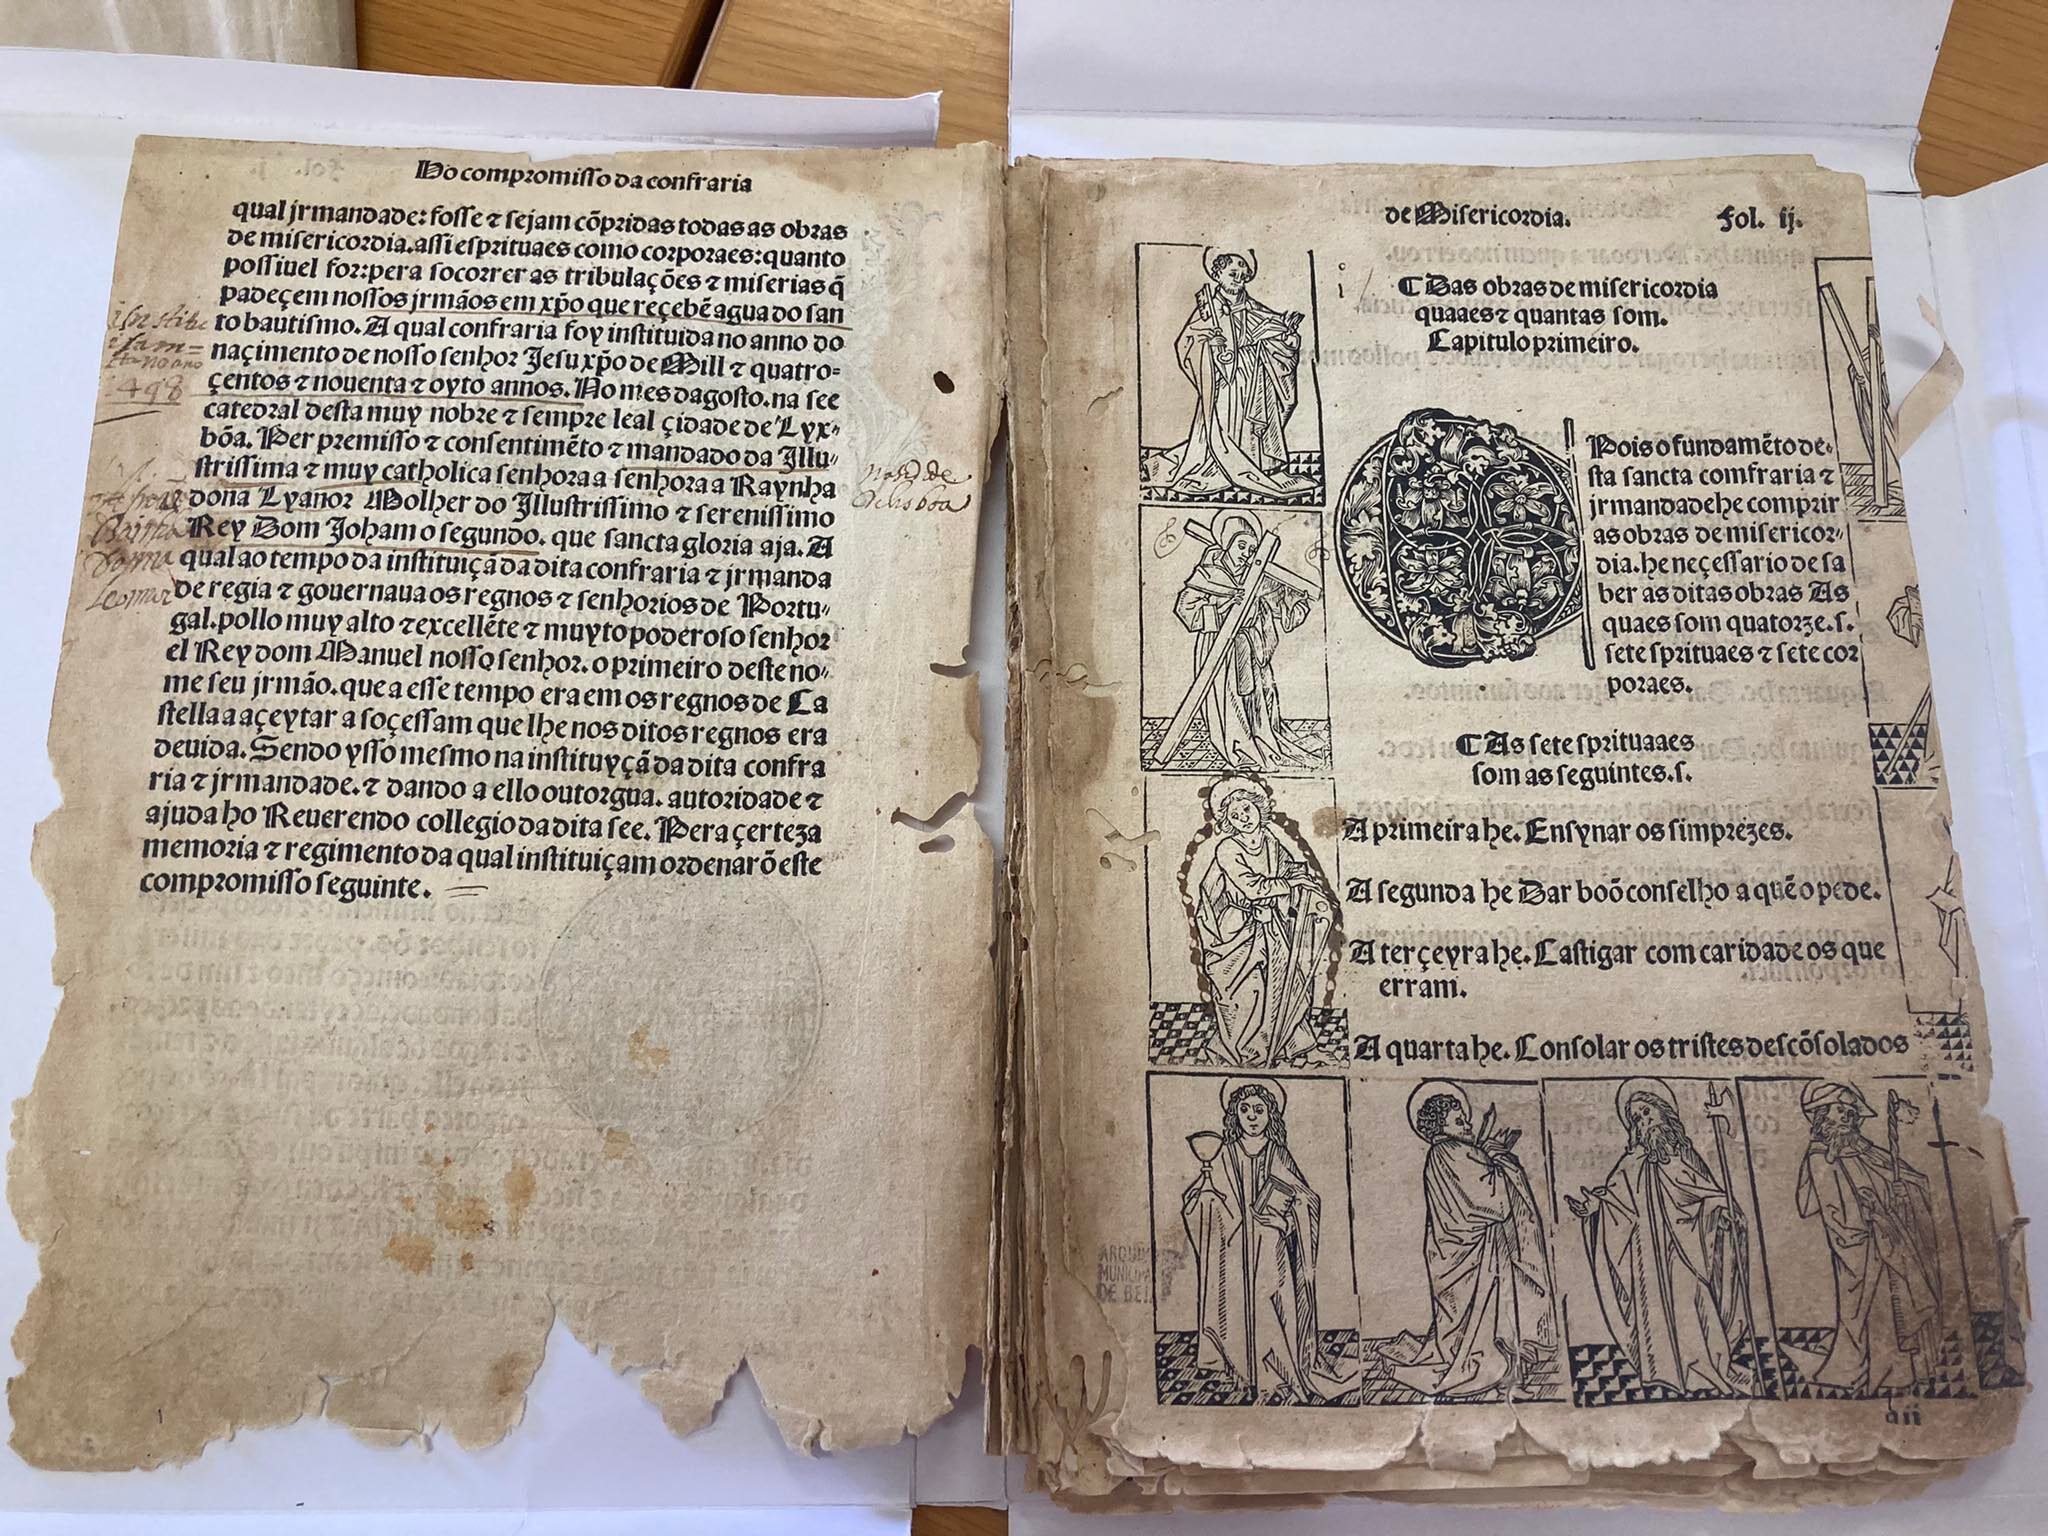 Ho compromisso da confraria
qual jrmandade: fosse ⁊ sejam cõpridas todas as obras
de misericordia. assi esprituaes como corporaes: quanto
possiuel for: pera socorrer as tribulações ⁊ miserias q̃
padeçem nossos jrmãos em xp̃o que reçebẽ agua do san
to bautismo. A qual confraria foy instituida no anno do
naçimento de nosso senhor Jesu xp̃o de Mill ⁊ quatro=
çentos ⁊ nouenta ⁊ oyto annos. No mes dagosto. na see
catedral desta muy nobre ⁊ sempre leal çidade de Lyx=
bõa. Per premisso ⁊ consentimẽto ⁊ mandado da Illu=
strissima ⁊ muy catholica senhora a senhora a Raynha
dona Lyanor Molher do Illustrissimo ⁊ serenissimo
Rey Dom Joham o segundo. que sancta gloria aja. A
qual ao tempo da instituiçã da dita confraria ⁊ jrmanda
de regia ⁊ gouernaua os regnos ⁊ senhorios de Portu=
gal. pollo muy alto ⁊ excellẽte ⁊ muyto poderoso senhor
el Rey dom Manuel nosso senhor. o primeiro deste no=
me seu jrmão. que a esse tempo era em os regnos de Ca
stella a açeytar a soçessam que lhe nos ditos regnos era
deuida. Sendo ysso mesmo na instituyçã da dita confra
ria ⁊ jrmandade. ⁊ dando a ello outorgua. autoridade ⁊
ajuda ho Reuerendo collegio da dita see. Pera çerteza
memoria ⁊ regimento da qual instituiçam ordenarõ este
compromisso seguinte.
1498
Rainha
Donna
Leonor
de Misericordia. Fol. ij.
¶ Das obras de misericordia
quaaes ⁊ quantas som.
Capitulo primeiro.
Pois o fundamẽto de=
sta sancta comfraria ⁊
jrmandade he comprir
as obras de misericor=
dia. he neçessario de sa
ber as ditas obras As
quaes som quatorze. s.
sete sprituaes ⁊ sete cor
poraes.
¶ As sete sprituaaes
som as seguintes. s.
A primeira he. Ensynar os simprezes.
A segunda he Dar boõ conselho a quẽ o pede.
A terçeyra he. Castigar com caridade os que
erram.
A quarta he. Consolar os tristes descõsolados
ARQUI
MUNICIPA
DE BE
aii